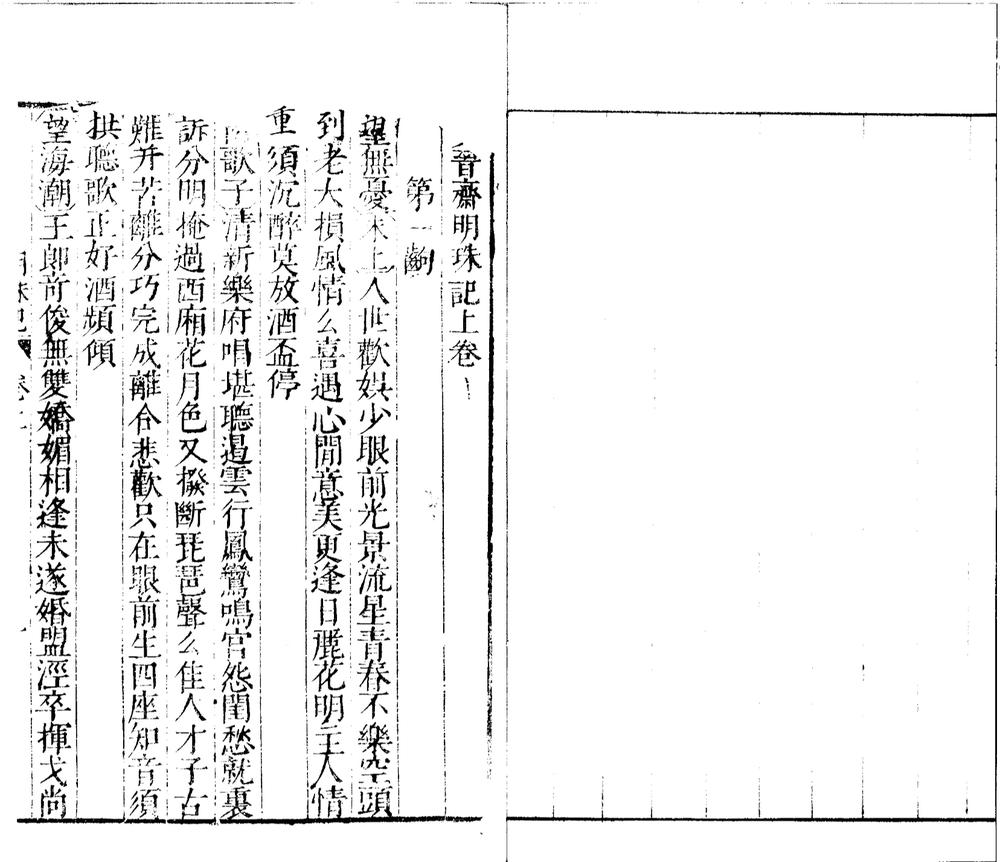 晉齋明珠記上卷
第一齣
望無憂末上人世歡娛少眼前光景流星青春不樂空頭
到老大損風情么喜遇心閒意美更逢日麗花明主人情
重須沉醉莫放酒盃停
歌子清新樂府唱堪聽遏雲行鳳鸞鳴宮怨閨愁就裏
訴分明掩過西廂花月色又撥斷琵琶聲么佳人才子古
難并苦離分巧完成離合悲歡只在眼前生四座知音須
拱聽歌正好酒頻傾
望海潮王郎奇俊無雙嬌媚相逢未遂婚盟涇卒揮戈尚